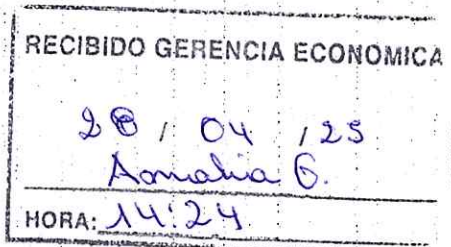 RECIBIDO GERENCIA ECONOMICA
28 / 04 / 25
G.
HORA: 14:24